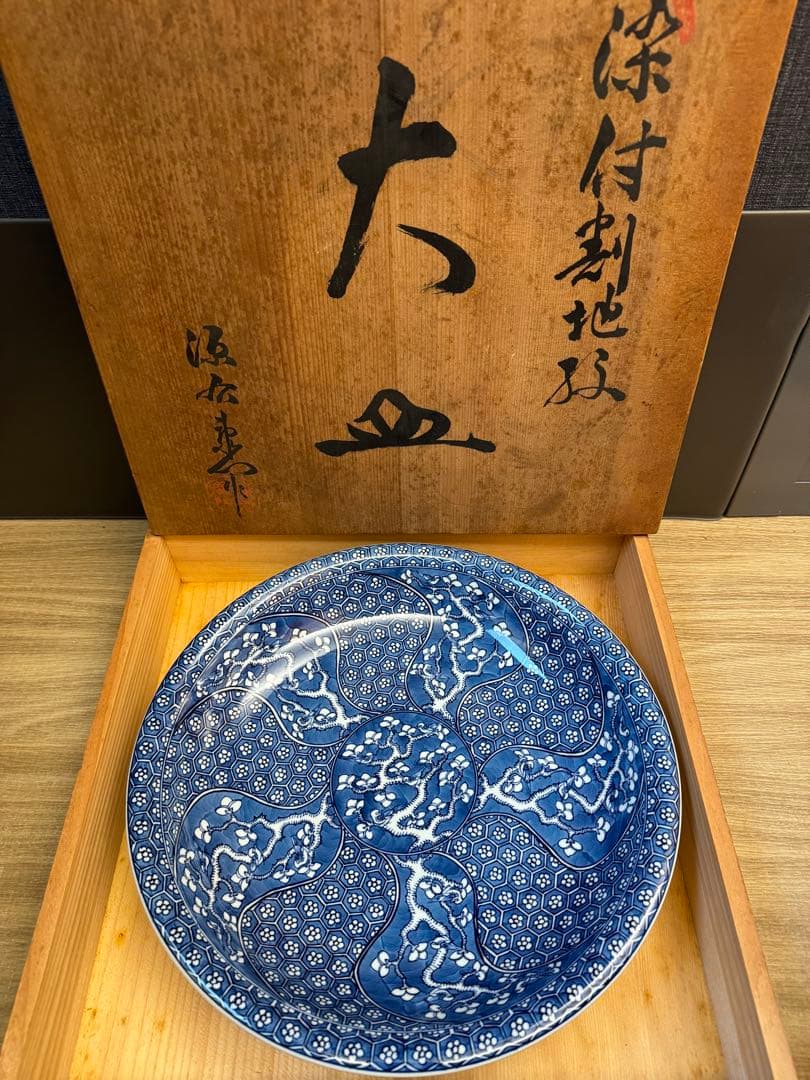 染付割地紋
大皿
源右衛門作